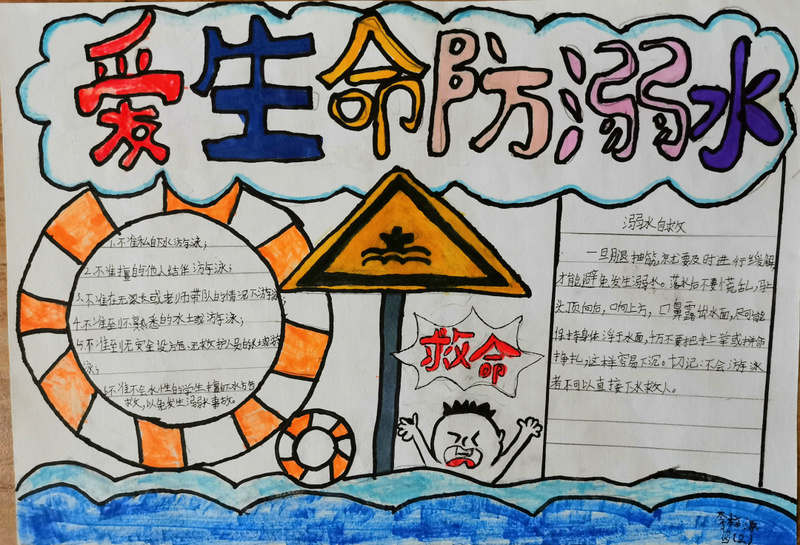 爱生命防溺水
1.不准私自下水游泳;
2.不准擅自与他人结伴游泳;
3.不准在无家长或老师带队的情况下游泳;
4.不准到不熟悉的水域游泳;
5.不准到无安全设施、无救护人员的水域游
泳;
6.不准不会水性的学生擅自下水施
救,以免发生溺水事故。
救命
溺水自救
一旦腿抽筋,您需要及时进行缓解
才能避免发生溺水。落水后不要慌乱,马上
头顶向后,口向上方,口鼻露出水面,尽可能
保持身体浮于水面,千万不要把手上举或拼命
挣扎,这样容易下沉。切记:不会游泳
者不可以直接下水救人。